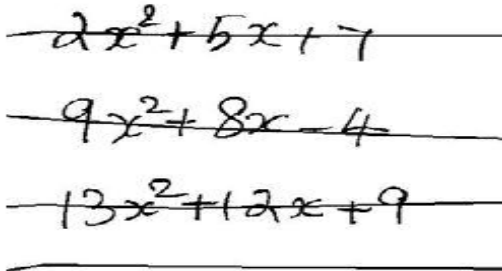 2x²+5x+7
9x²+8x-4
13x²+12x+9